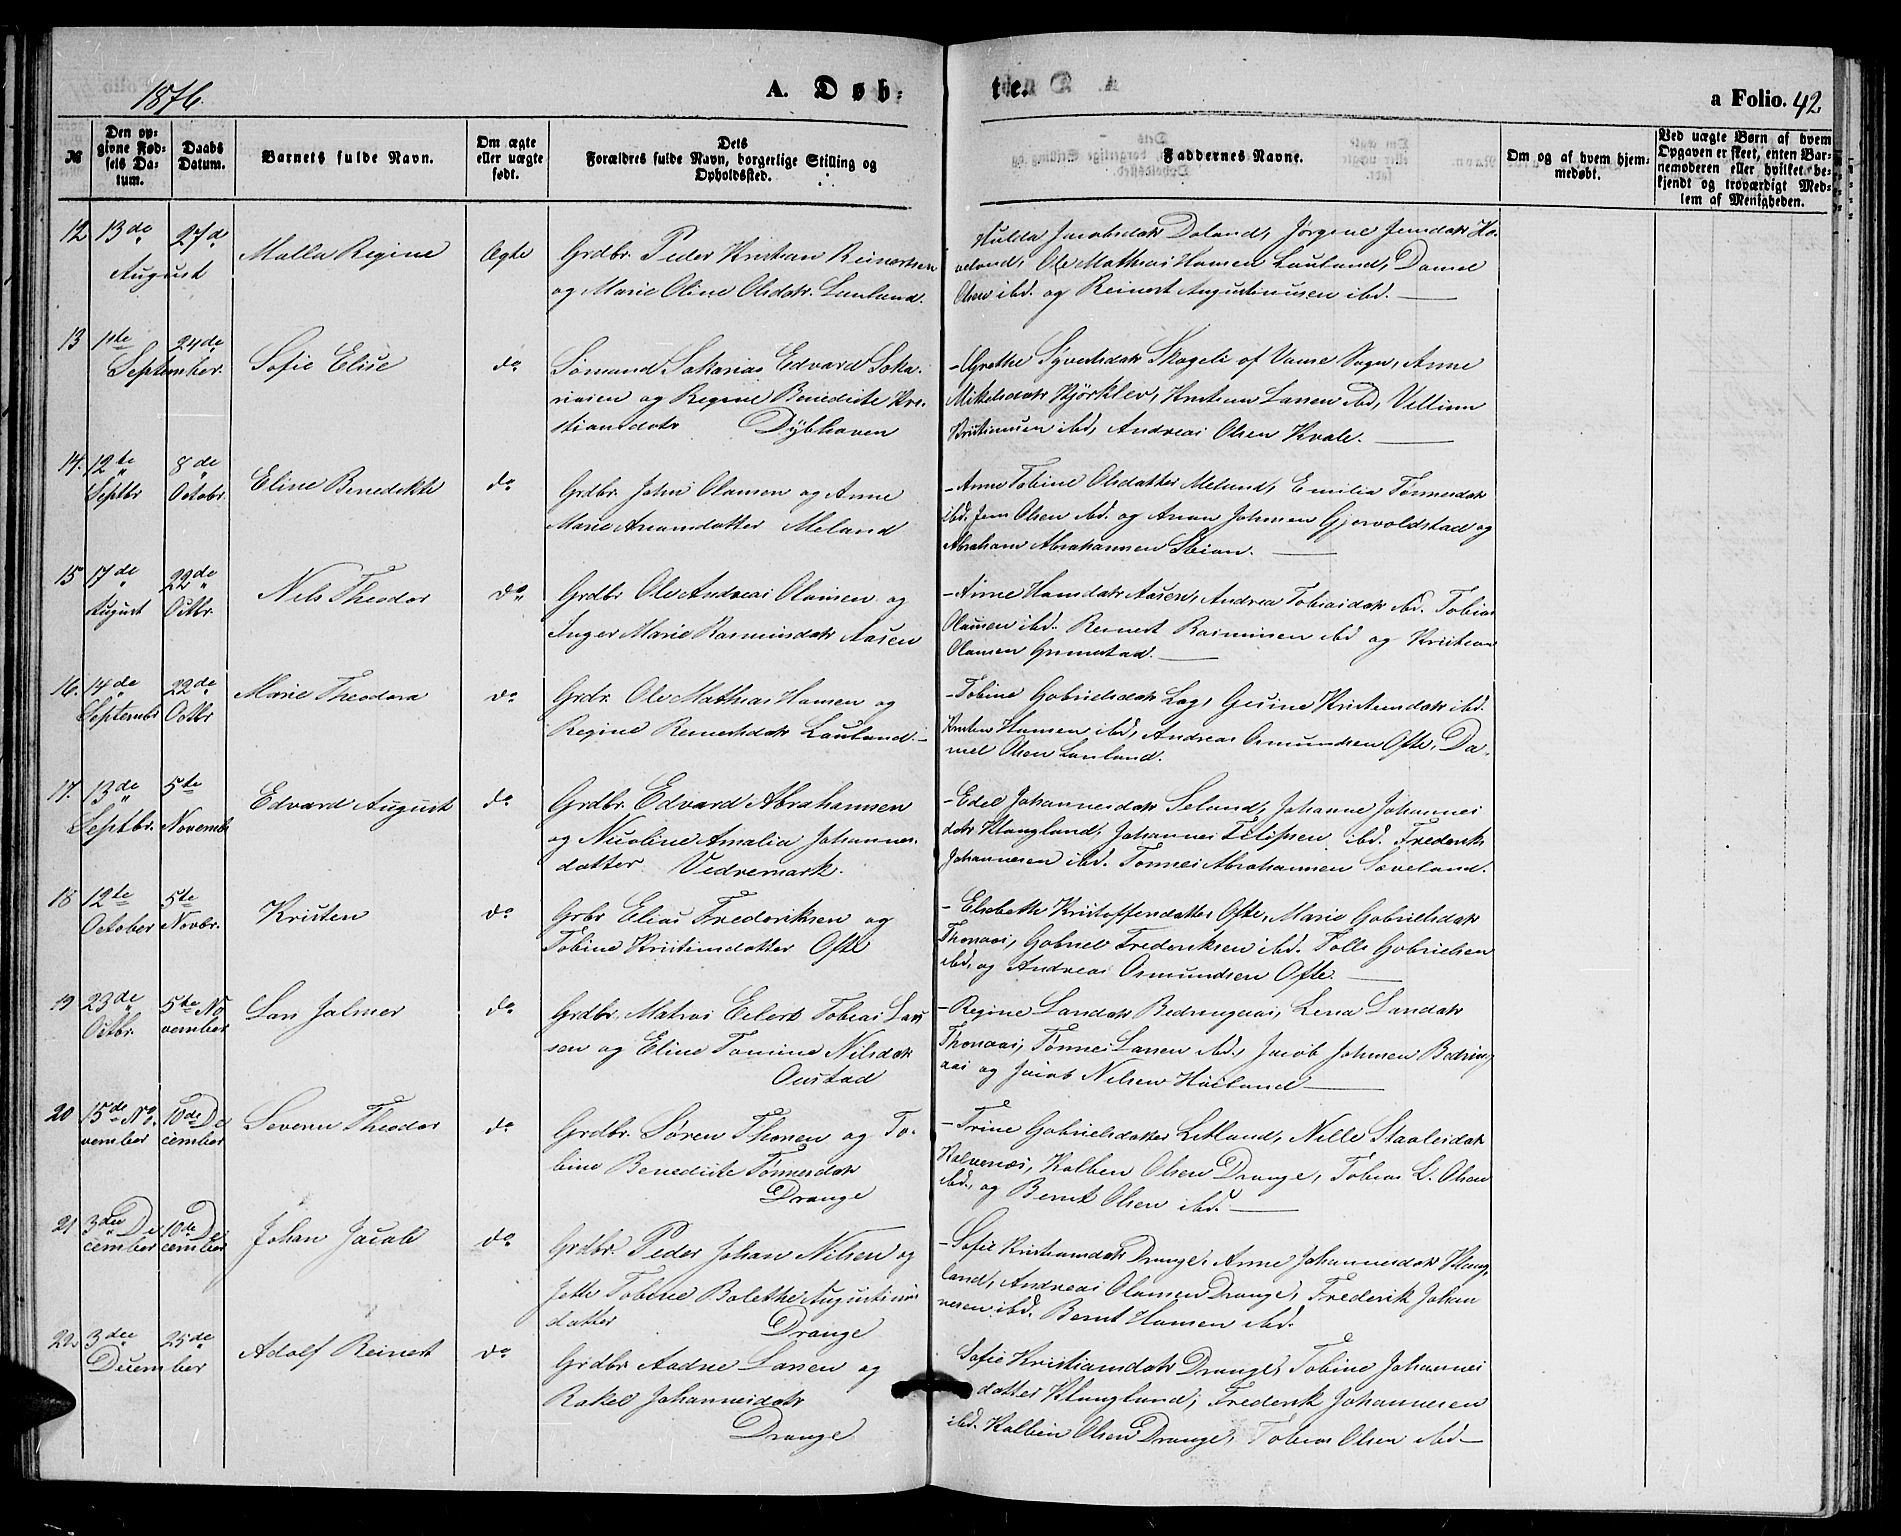 1876.
A. Døb-
te.
a Folio. 42
№
Den op-
givne Fød-
sels Da-
tum.
Daabs
Datum.
Barnets fulde Navn.
Om ægte
eller uægte
født.
Dets
Forældres fulde Navn, borgerlige Stilling og
Opholdssted.
Faddernes Navne.
Om og af hvem hjem-
medøbt.
Ved uægte Børn af hvem
Opgaven er skeet, enten Bar-
nemoderen eller hvilket be-
kjendt og troværdigt Med-
lem af Menigheden.
12 13de 27de
August
Malla Regine
Ægte
Grdbr. Peder Kristian Reinertsen
og Marie Oline Olsdatr. Lauland.
Hulda Jacobsdatr Doland, Jørgine Jensdatr Ho-
veland, Ole Mathias Hansen Lauland, Daniel
Olsen ibd. og Reinert Augustinusen ibd.
13 1ste 24de
September.
Sofie Elise
do
Sømand Sakarias Edvard Saka-
riasen og Regine Benedicte Kri-
stiansdatr Dybhaven
- Grethe Syvertsdatr Skogeli af Vanse Sogn, Anne
Mikelsdatr Kjørklev, Kristian Larsen ibd, Vellum
Kristiansen ibd, Andreas Olsen Kvale.
14. 12te 8de
Septbr Octobr.
Eline Benedikte
do
Grdbr. John Olausen og Anne
Marie Anansdatter Meland
- Anne Tobine Olsdatter Meland, Emilie Tønnesdatr
ibd. Jens Olsen ibd. og Anan Johnsen Gjervoldstad og
Abraham Abrahamsen Stein.
15 17de 22de
August Octbr.
Nils Theodor
do
Grdbr Ole Andreas Olausen og
Inger Marie Rasmusdatr Aasen
- Anne Hansdatr Aasen, Andrea Tobiasdatr ibd. Tobias
Olausen ibd. Reinert Rasmusen ibd og Kristian
Olausen Grimestad.
16. 14de 22de
Septembr Octbr
Marie Theodora
do
Grdr. Ole Mathias Hansen og
Regine Reinertsdatr Lauland.
- Tobine Gabrielsdatr Log, Gusine Kristensdatr ibd.
Kristen Hansen ibd, Andreas Osmundsen Ofte, Da-
niel Olsen Lauland.
17. 13de 5te
Septbr. Novembr
Edvard August
do
Grdbr. Edvard Abrahamsen
og Nicoline Amalia Johannes-
datter Vedremark.
- Edel Johannesdatr Seland, Johanne Johannes
datr Klungland, Johannes Filipsen ibd. Frederik
Johannesen ibd. Tønnes Abrahamsen Søveland.
18 12te 5te
October Novbr.
Kristen
do
Grbr. Elias Frederiksen og
Tobine Kristensdatter Ofte
- Elsebeth Kristoffersdatter Ofte, Marie Gabrielsdatr
Thonaas, Gabriel Frederiksen ibd. Tolle Gabrielsen
ibd. og Andreas Osmundsen Ofte.
19 23de 5te No
Octbr. vember
Lars Jalmer
do
Grdbr. Matias Eilert Tobias Lar
sen og Eline Tomine Nilsdatr
Oustad
- Regine Larsdatr Bedringaas, Lena Larsdatr
Thonaas, Tønnes Larsen ibd., Jacob Johnsen Bedring
aas og Jacob Nelsen Høiland
20 15de No- 10de De
vember cember
Severin Theodor
do
Grdbr. Søren Thorsen og To-
bine Benedicte Tønnesdatr
Drange
- Trine Gabrielsdatter Litland, Nille Staalesdatr
Kalvenes, Kolben Olsen Drange, Tobias L. Olsen
ibd., og Bernt Olsen ibd.
21 3die De 10de De
cember cember
Johan Jacob
do
Grdbr. Peder Johan Nilsen og
Jette Tobine Bolethe Augustinus
datter Drange
- Sofie Kristiansdatr Drange, Anne Johannesdatr Klung-
land, Andreas Olausen Drange, Frederik Johan
nesen ibd. Bernt Hansen ibd.
22. 3die 25de
December
Adolf Reinert
do
Grdbr Aadne Larsen og
Rakel Johannesdatr
Drange
Sofie Kristiansdatr Drange, Tobine Johannes
datter Klungland, Frederik Johannesen
ibd. Kolben Olsen Drange, Tobias Olsen ibd.